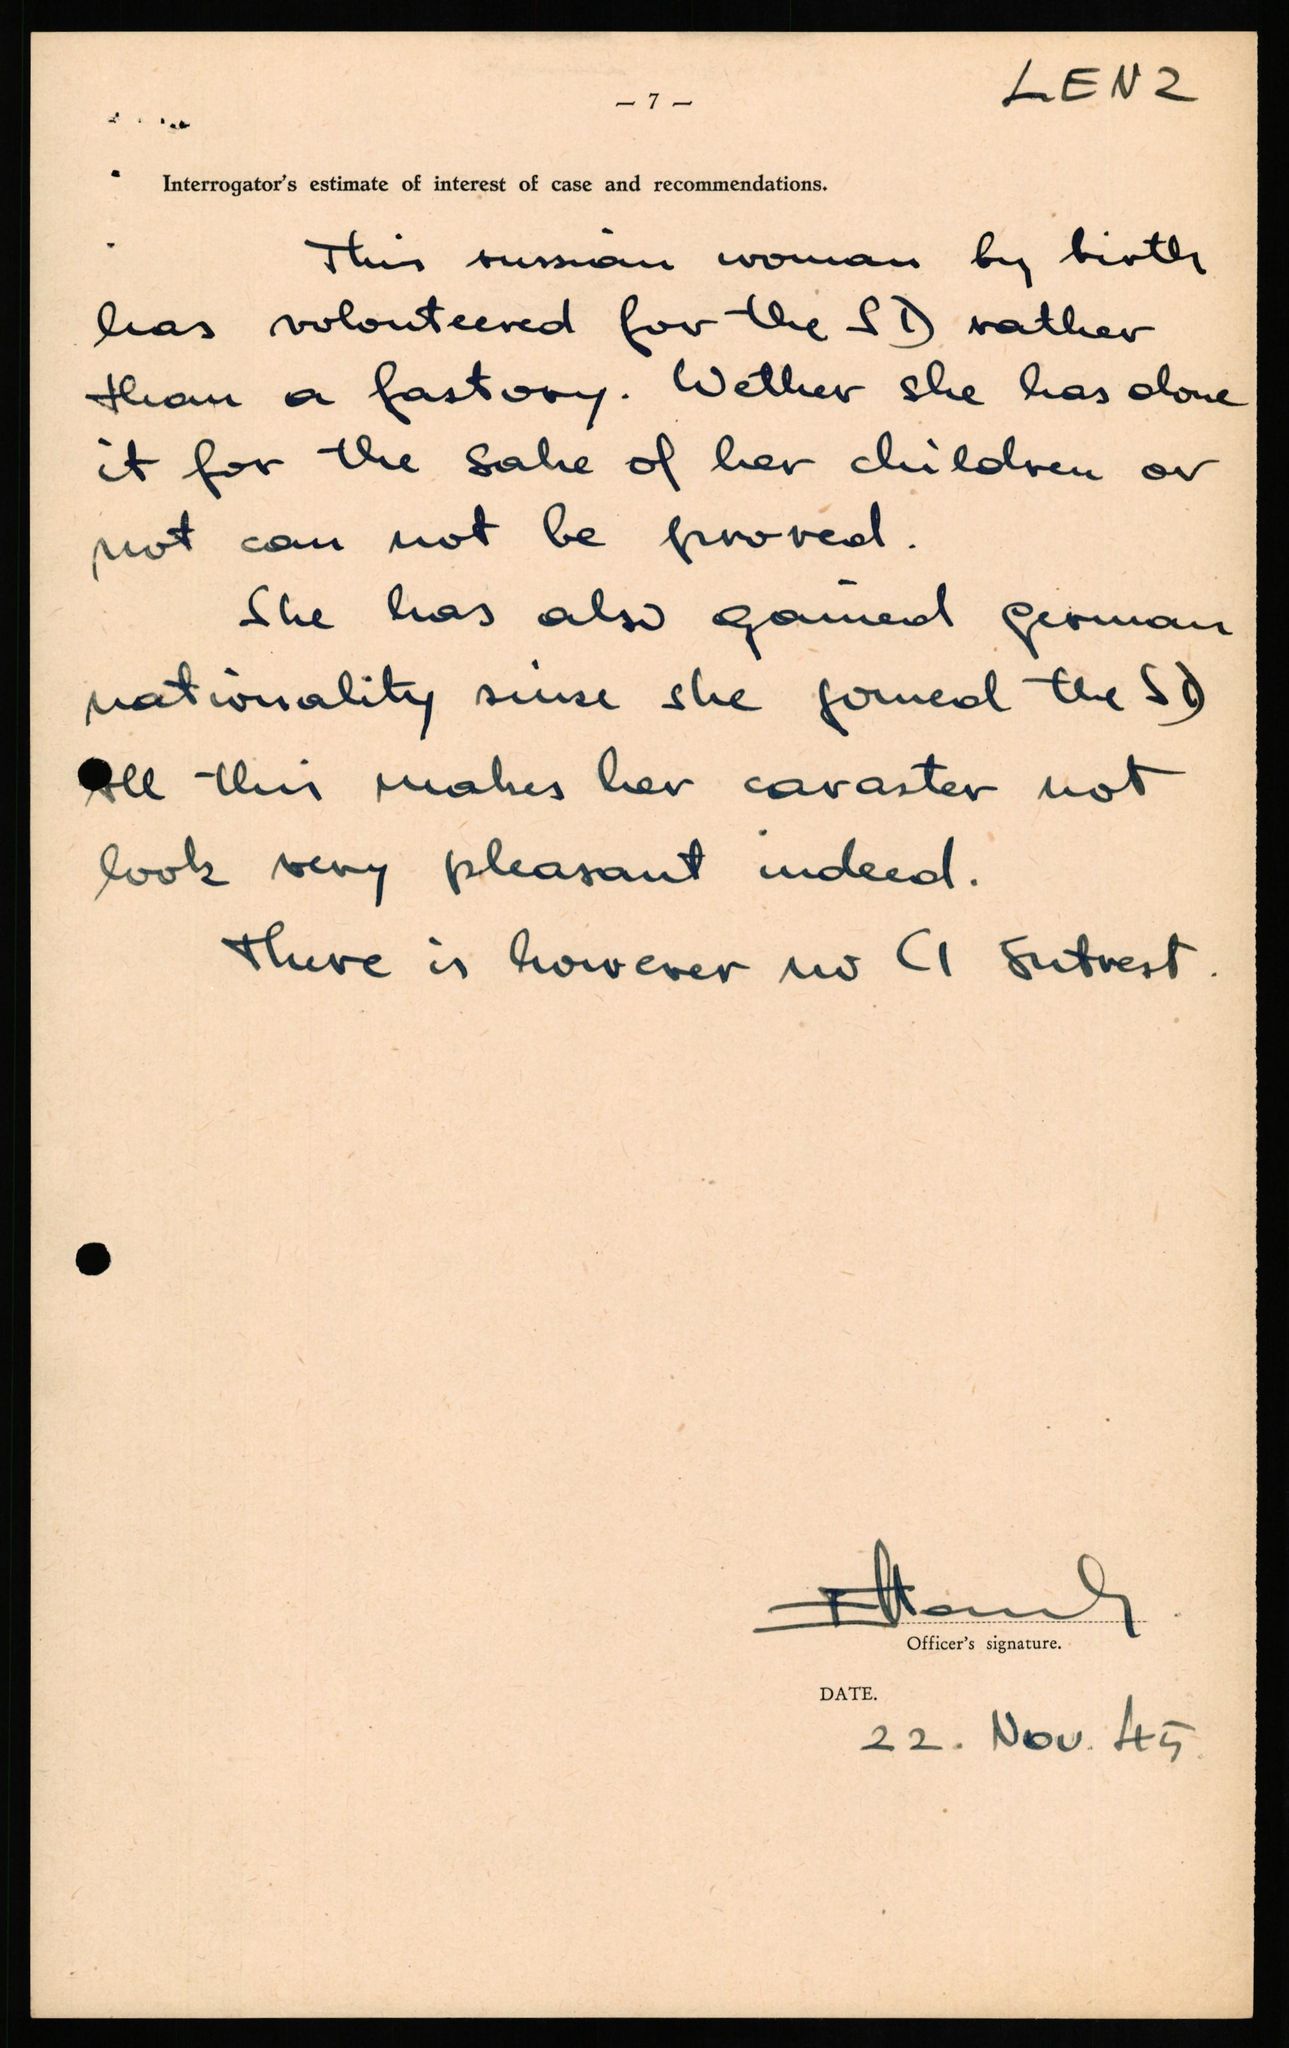 LENZ
– 7 –
Interrogator's estimate of interest of case and recommendations.
This russian woman by birth
has volonteered for the SD rather
than a fastory. Wether she has done
it for the sake of her children or
not can not be proved.
She has also gained german
nationality sinse she joined the SD
All this makes her caraster not
look very pleasant indeed.
There is however no CI Intrest.
Officer's signature.
DATE.
22. Nov. 45.